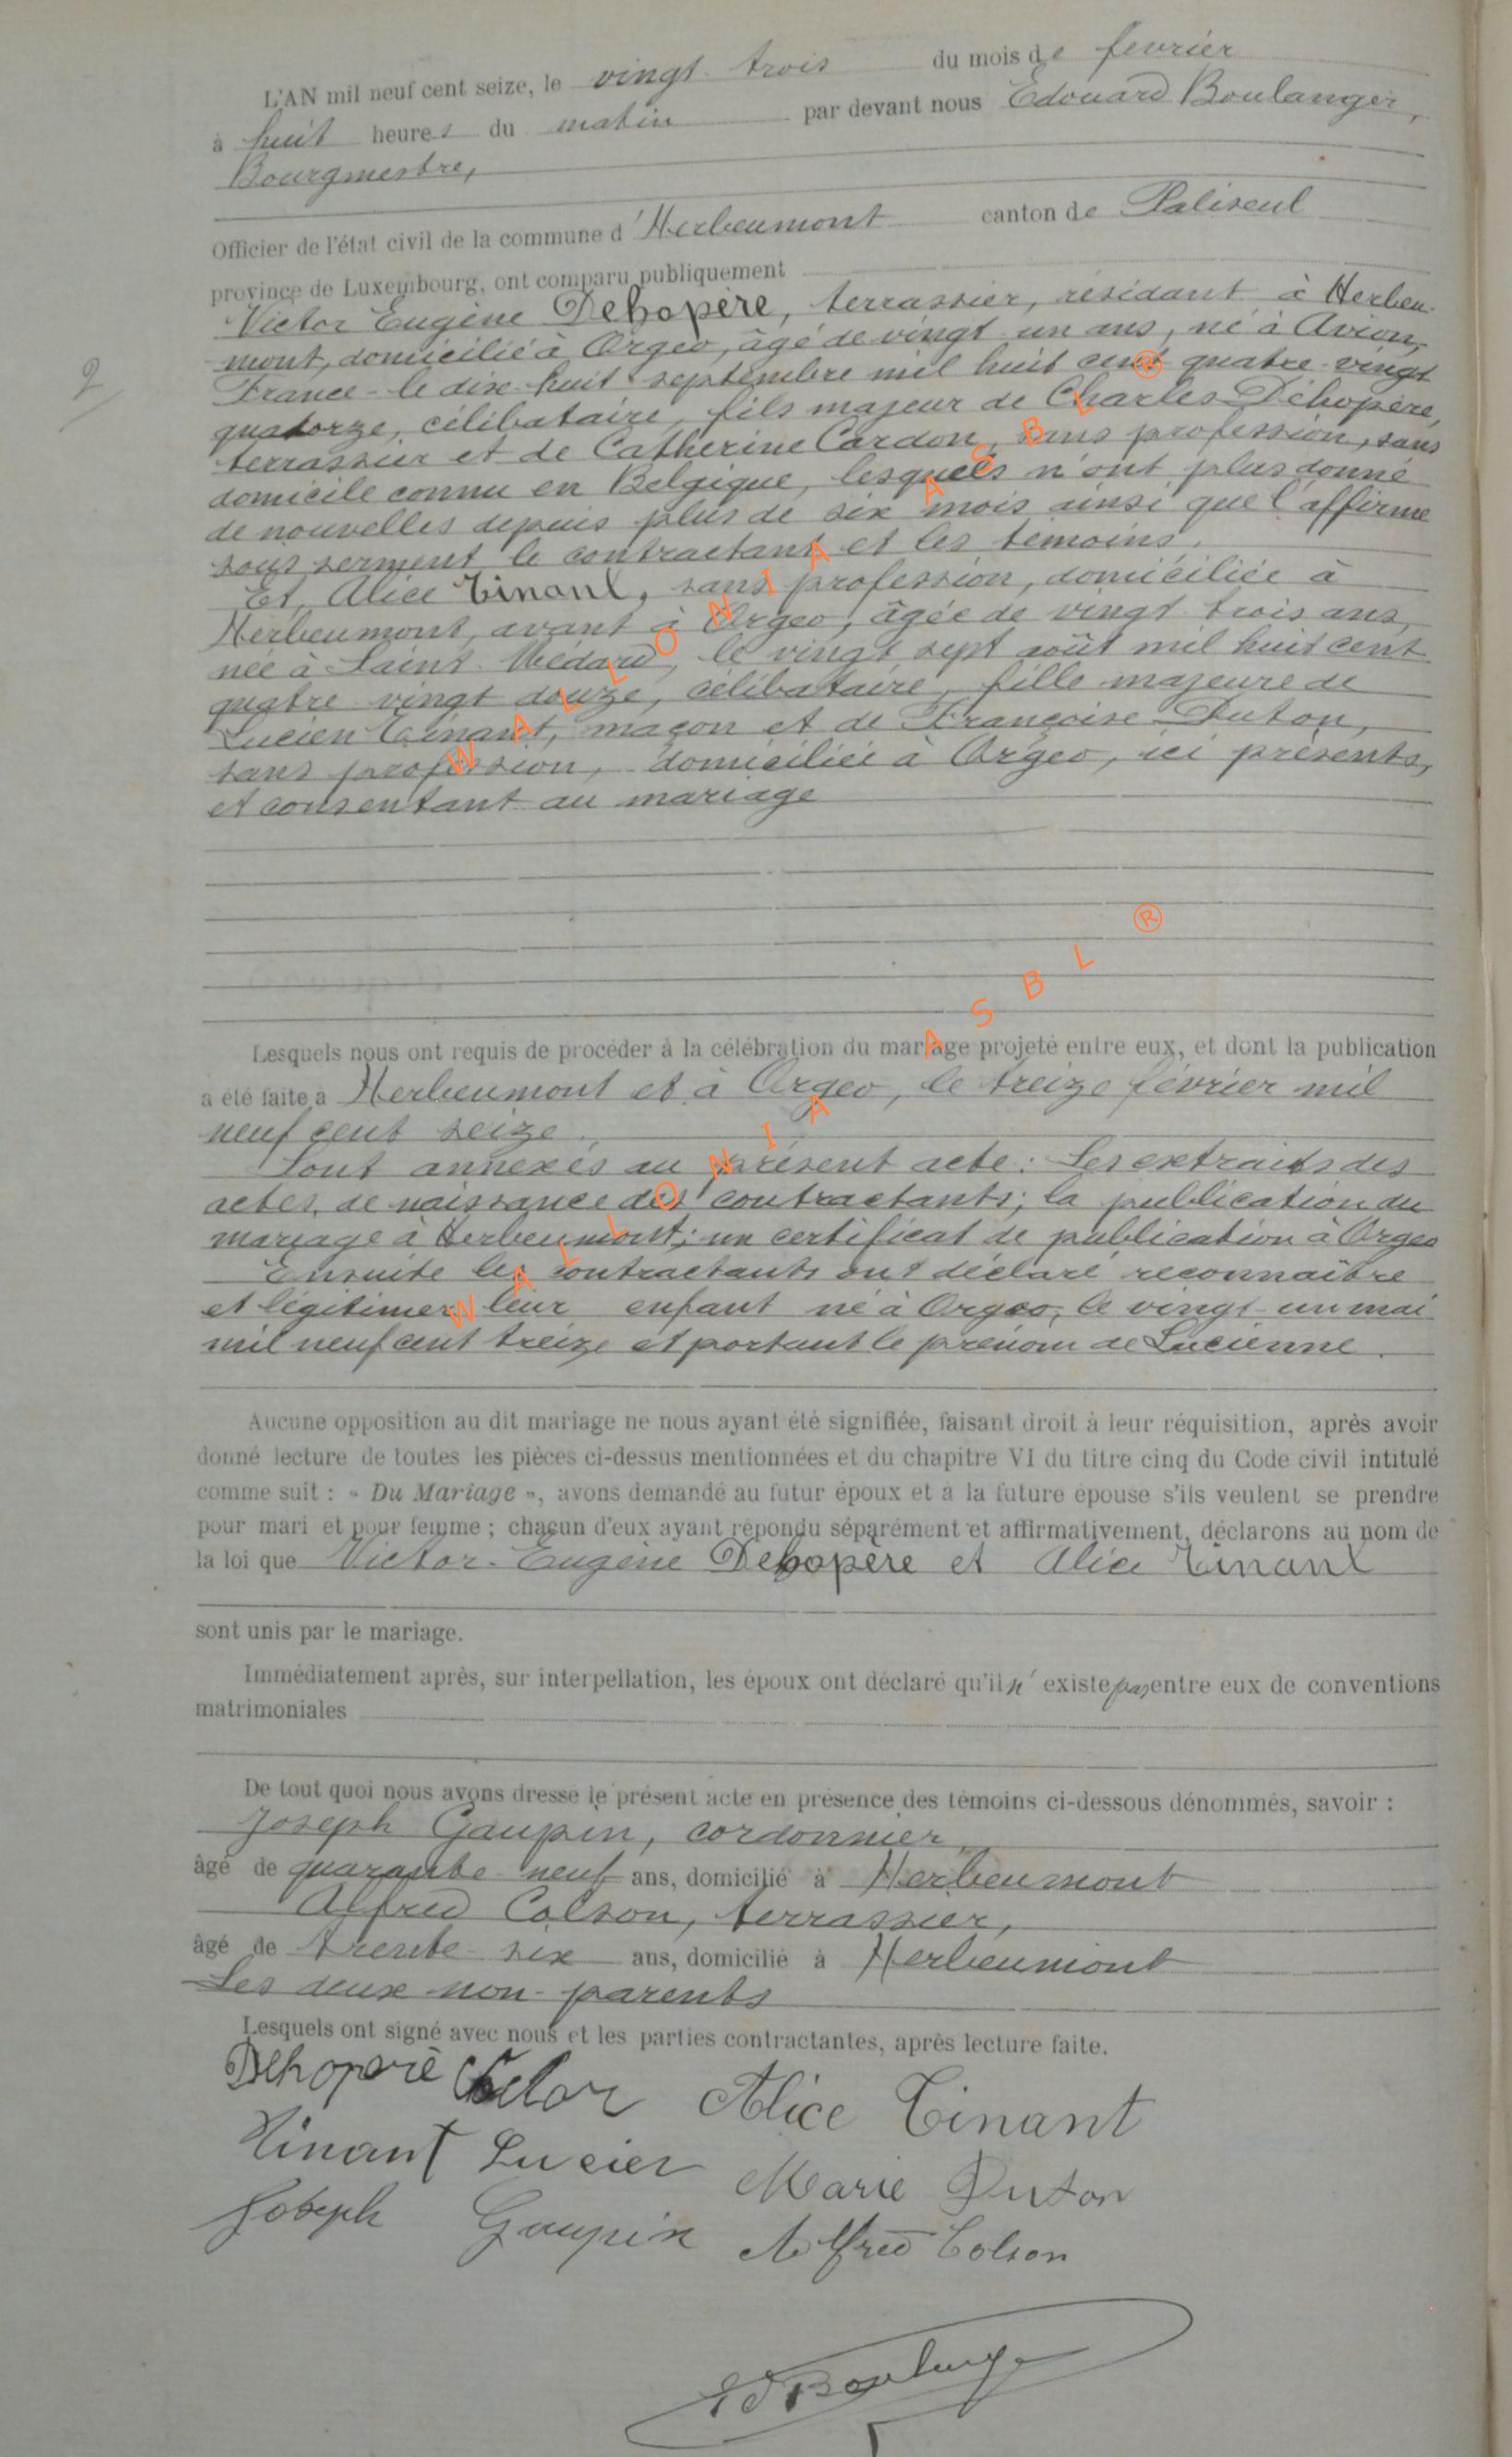 L'AN mil neuf cent seize, le vingt trois du mois de fevrier
à huit heures du matin par devant nous Edouard Boulanger,
Bourgmestre,
Officier de l'état civil de la commune d'Herbeumont canton de Paliseul
province de Luxembourg, ont comparu publiquement
Victor Eugène Dehopère, terrassier, résidant à Herbeu-
mont, domicilié à Orgeo, âgé de vingt un ans, né à Avion,
France - le dix-huit septembre mil huit cent quatre-vingt
quatorze, célibataire, fils majeur de Charles Déhopère,
terrassier et de Catherine Cardon, sans profession, sans
domicile connu en Belgique, lesquels n'ont plus donné
de nouvelles depuis plus de six mois ainsi que l'affirme
sous serment le contractant et les témoins.
Et, Alice Tinant, sans profession, domiciliée à
Herbeumont, avant à Orgeo, âgée de vingt trois ans,
née à Saint-Médard, le vingt sept août mil huit cent
quatre vingt douze, célibataire, fille majeure de
Lucien Tinant, maçon et de Françoise Duton,
sans profession, domiciliée à Orgeo, ici présents,
et consentant au mariage
2
Lesquels nous ont requis de procéder à la célébration du mariage projeté entre eux, et dont la publication
a été faite à Herbeumont et à Orgeo, le treize février mil
neuf cent seize.
Sont annexés au présent acte : Les extraits des
actes de naissance des contractants; la publication du
mariage à Herbeumont; un certificat de publication à Orgeo
Ensuite les contractants ont déclaré reconnaître
et légitimer leur enfant né à Orgeo, le vingt-un mai
mil neuf cent treize et portant le prénom de Lucienne.
Aucune opposition au dit mariage ne nous ayant été signifiée, faisant droit à leur réquisition, après avoir
donné lecture de toutes les pièces ci-dessus mentionnées et du chapitre VI du titre cinq du Code civil intitulé
comme suit : « Du Mariage », avons demandé au futur époux et à la future épouse s'ils veulent se prendre
pour mari et pour femme ; chacun d'eux ayant répondu séparément et affirmativement, déclarons au nom de
la loi que Victor-Eugène Dehopère et Alice Tinant
sont unis par le mariage.
Immédiatement après, sur interpellation, les époux ont déclaré qu'il n'existe pas entre eux de conventions
matrimoniales
De tout quoi nous avons dressé le présent acte en présence des témoins ci-dessous dénommés, savoir :
Joseph Gaupin, cordonnier,
âgé de quarante-neuf ans, domicilié à Herbeumont
Alfred Colson, terrassier,
âgé de trente-six ans, domicilié à Herbeumont
Les deux non-parents
Lesquels ont signé avec nous et les parties contractantes, après lecture faite.
Dehoperè Victor Alice Tinant
Tinant Lucien Marie Duton
Joseph Gaupin Alfred Colson
Ed Boulanger
WALLONIA ASBL ®
WALLONIA ASBL ®